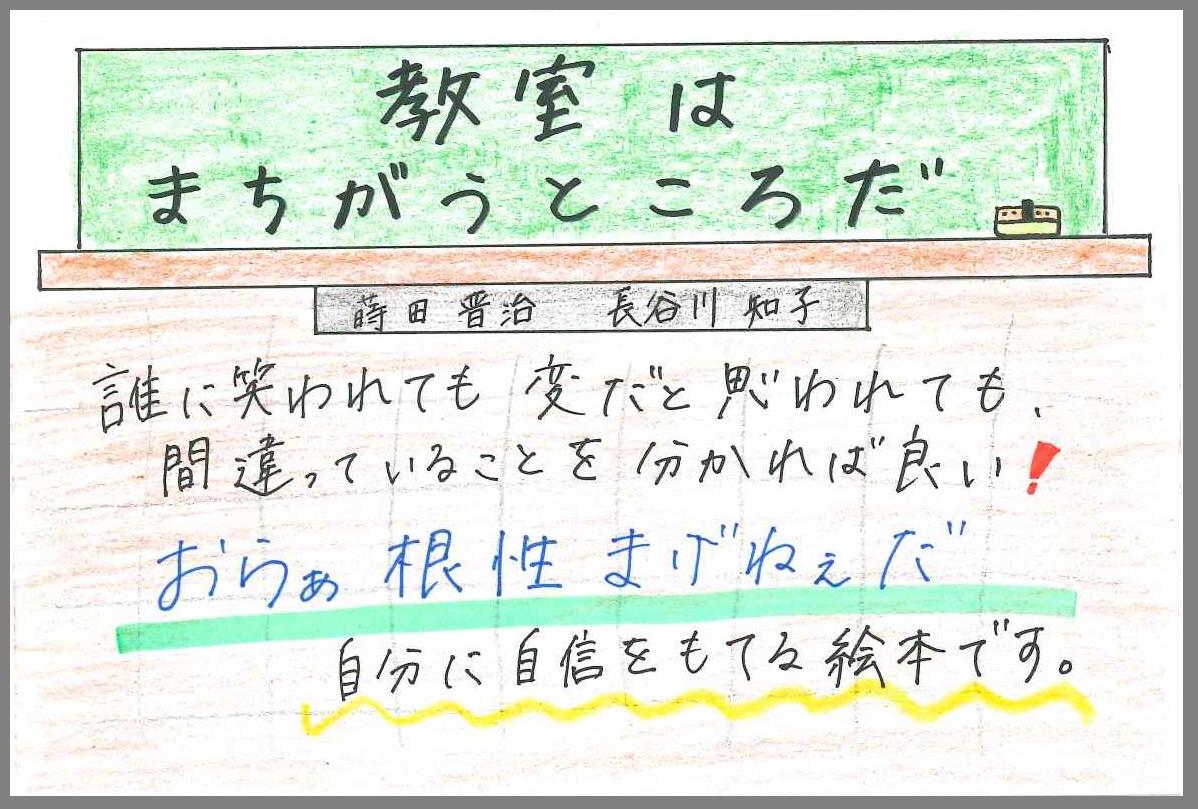 教室は
まちがうところだ
蒔田晋治 長谷川知子
誰に笑われても変だと思われても、
間違っていることを分かれば良い!
おらぁ根性まげねぇだ
自分に自信をもてる絵本です。